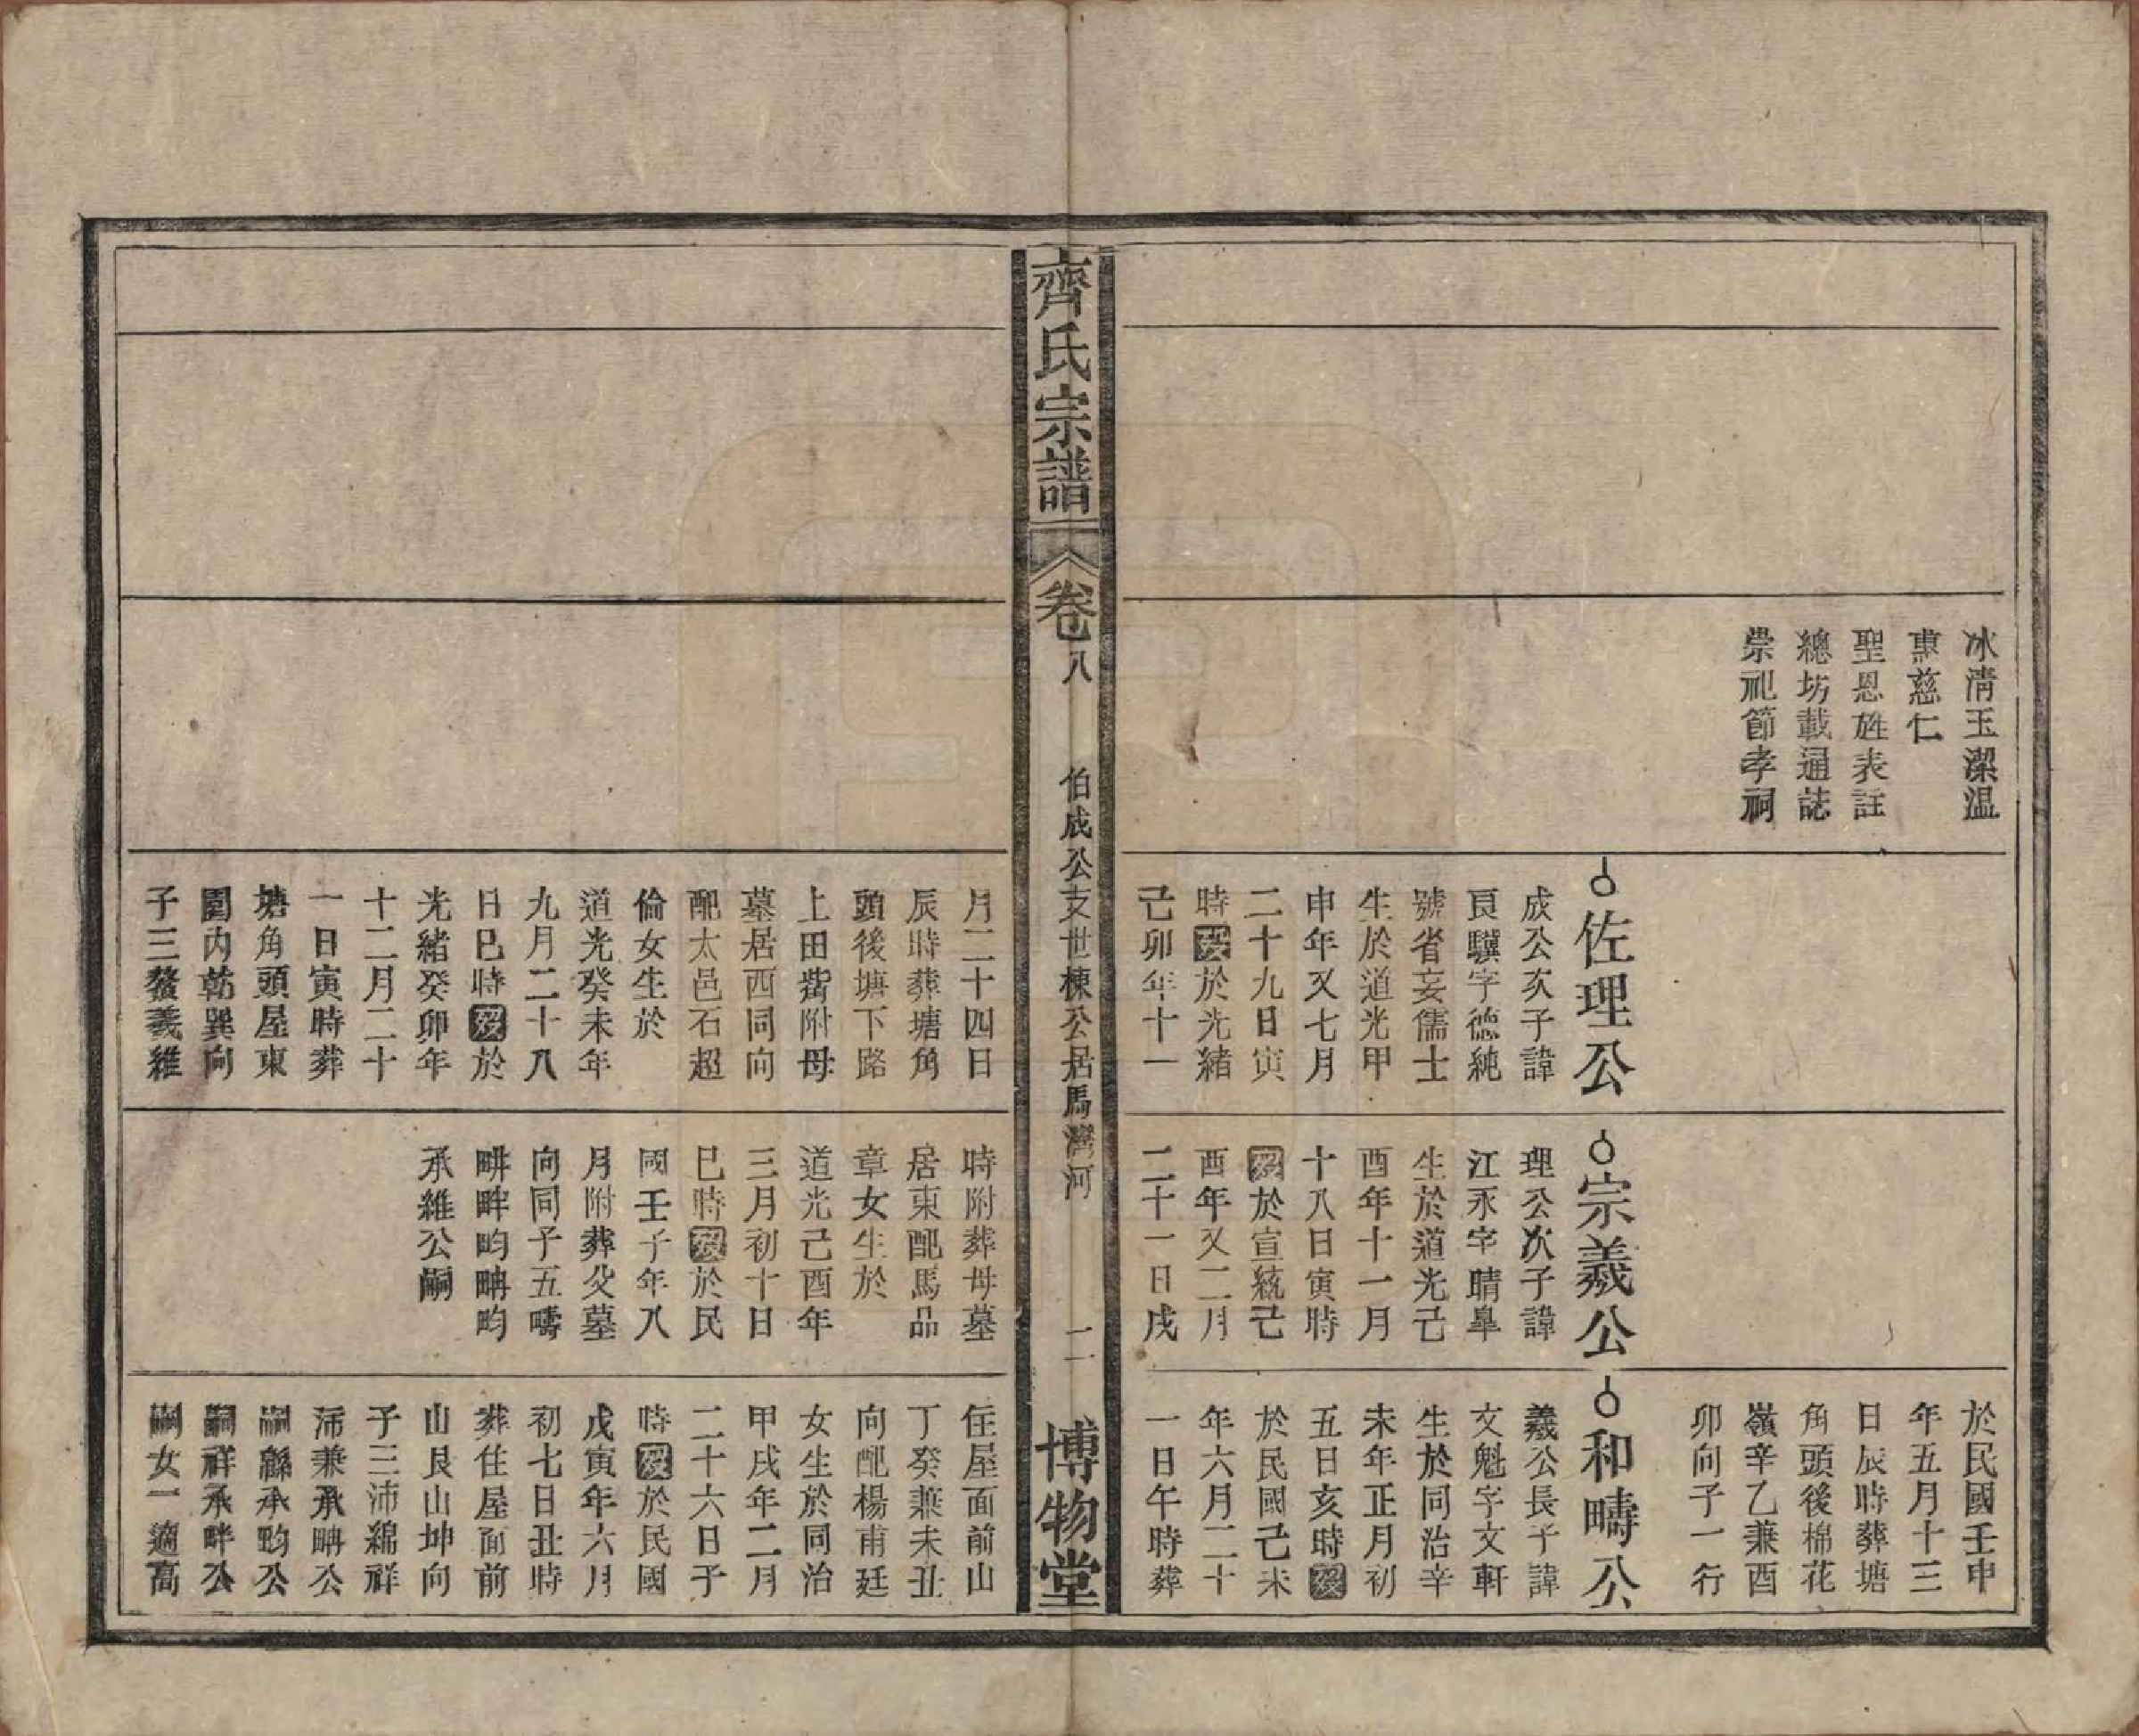 冰清玉潔温
惠慈仁
聖恩旌表註
總坊載通誌
崇祀節孝祠
佐理公
成公次子諱
良驥字德純
號省妄儒士
生於道光甲
申年又七月
二十九日寅
時歿於光緒
己卯年十一
宗羲公
理公次子諱
江永字晴臯
生於道光己
酉年十一月
十八日寅時
歿於宣統己
酉年又二月
二十一日戌
於民國壬申
年五月十三
日辰時葬塘
角頭後棉花
嶺辛乙兼酉
卯向子一行
和疇公
羲公長子諱
文魁字文軒
生於同治辛
未年正月初
五日亥時歿
於民國己未
年六月二十
一日午時葬
齊氏宗譜
卷八
伯成公支世棟公居馬灣河
二
博物堂
月二十四日
辰時葬塘角
頭後塘下路
上田觜附母
墓居西同向
配太邑石超
倫女生於
道光癸未年
九月二十八
日巳時歿於
光緒癸卯年
十二月二十
一日寅時葬
塘角頭屋東
園內乾巽向
子三鰲羲維
時附葬母墓
居東配馬品
章女生於
道光己酉年
三月初十日
巳時歿於民
國壬子年八
月附葬父墓
向同子五疇
畊畔畇畴畇
承維公嗣
住屋面前山
丁癸兼未丑
向配楊甫廷
女生於同治
甲戌年二月
二十六日子
時歿於民國
戊寅年六月
初七日丑時
葬住屋面前
山艮山坤向
子三沛綿祥
沛兼承畴公
嗣緜承畇公
嗣祥承畔公
嗣女一適高